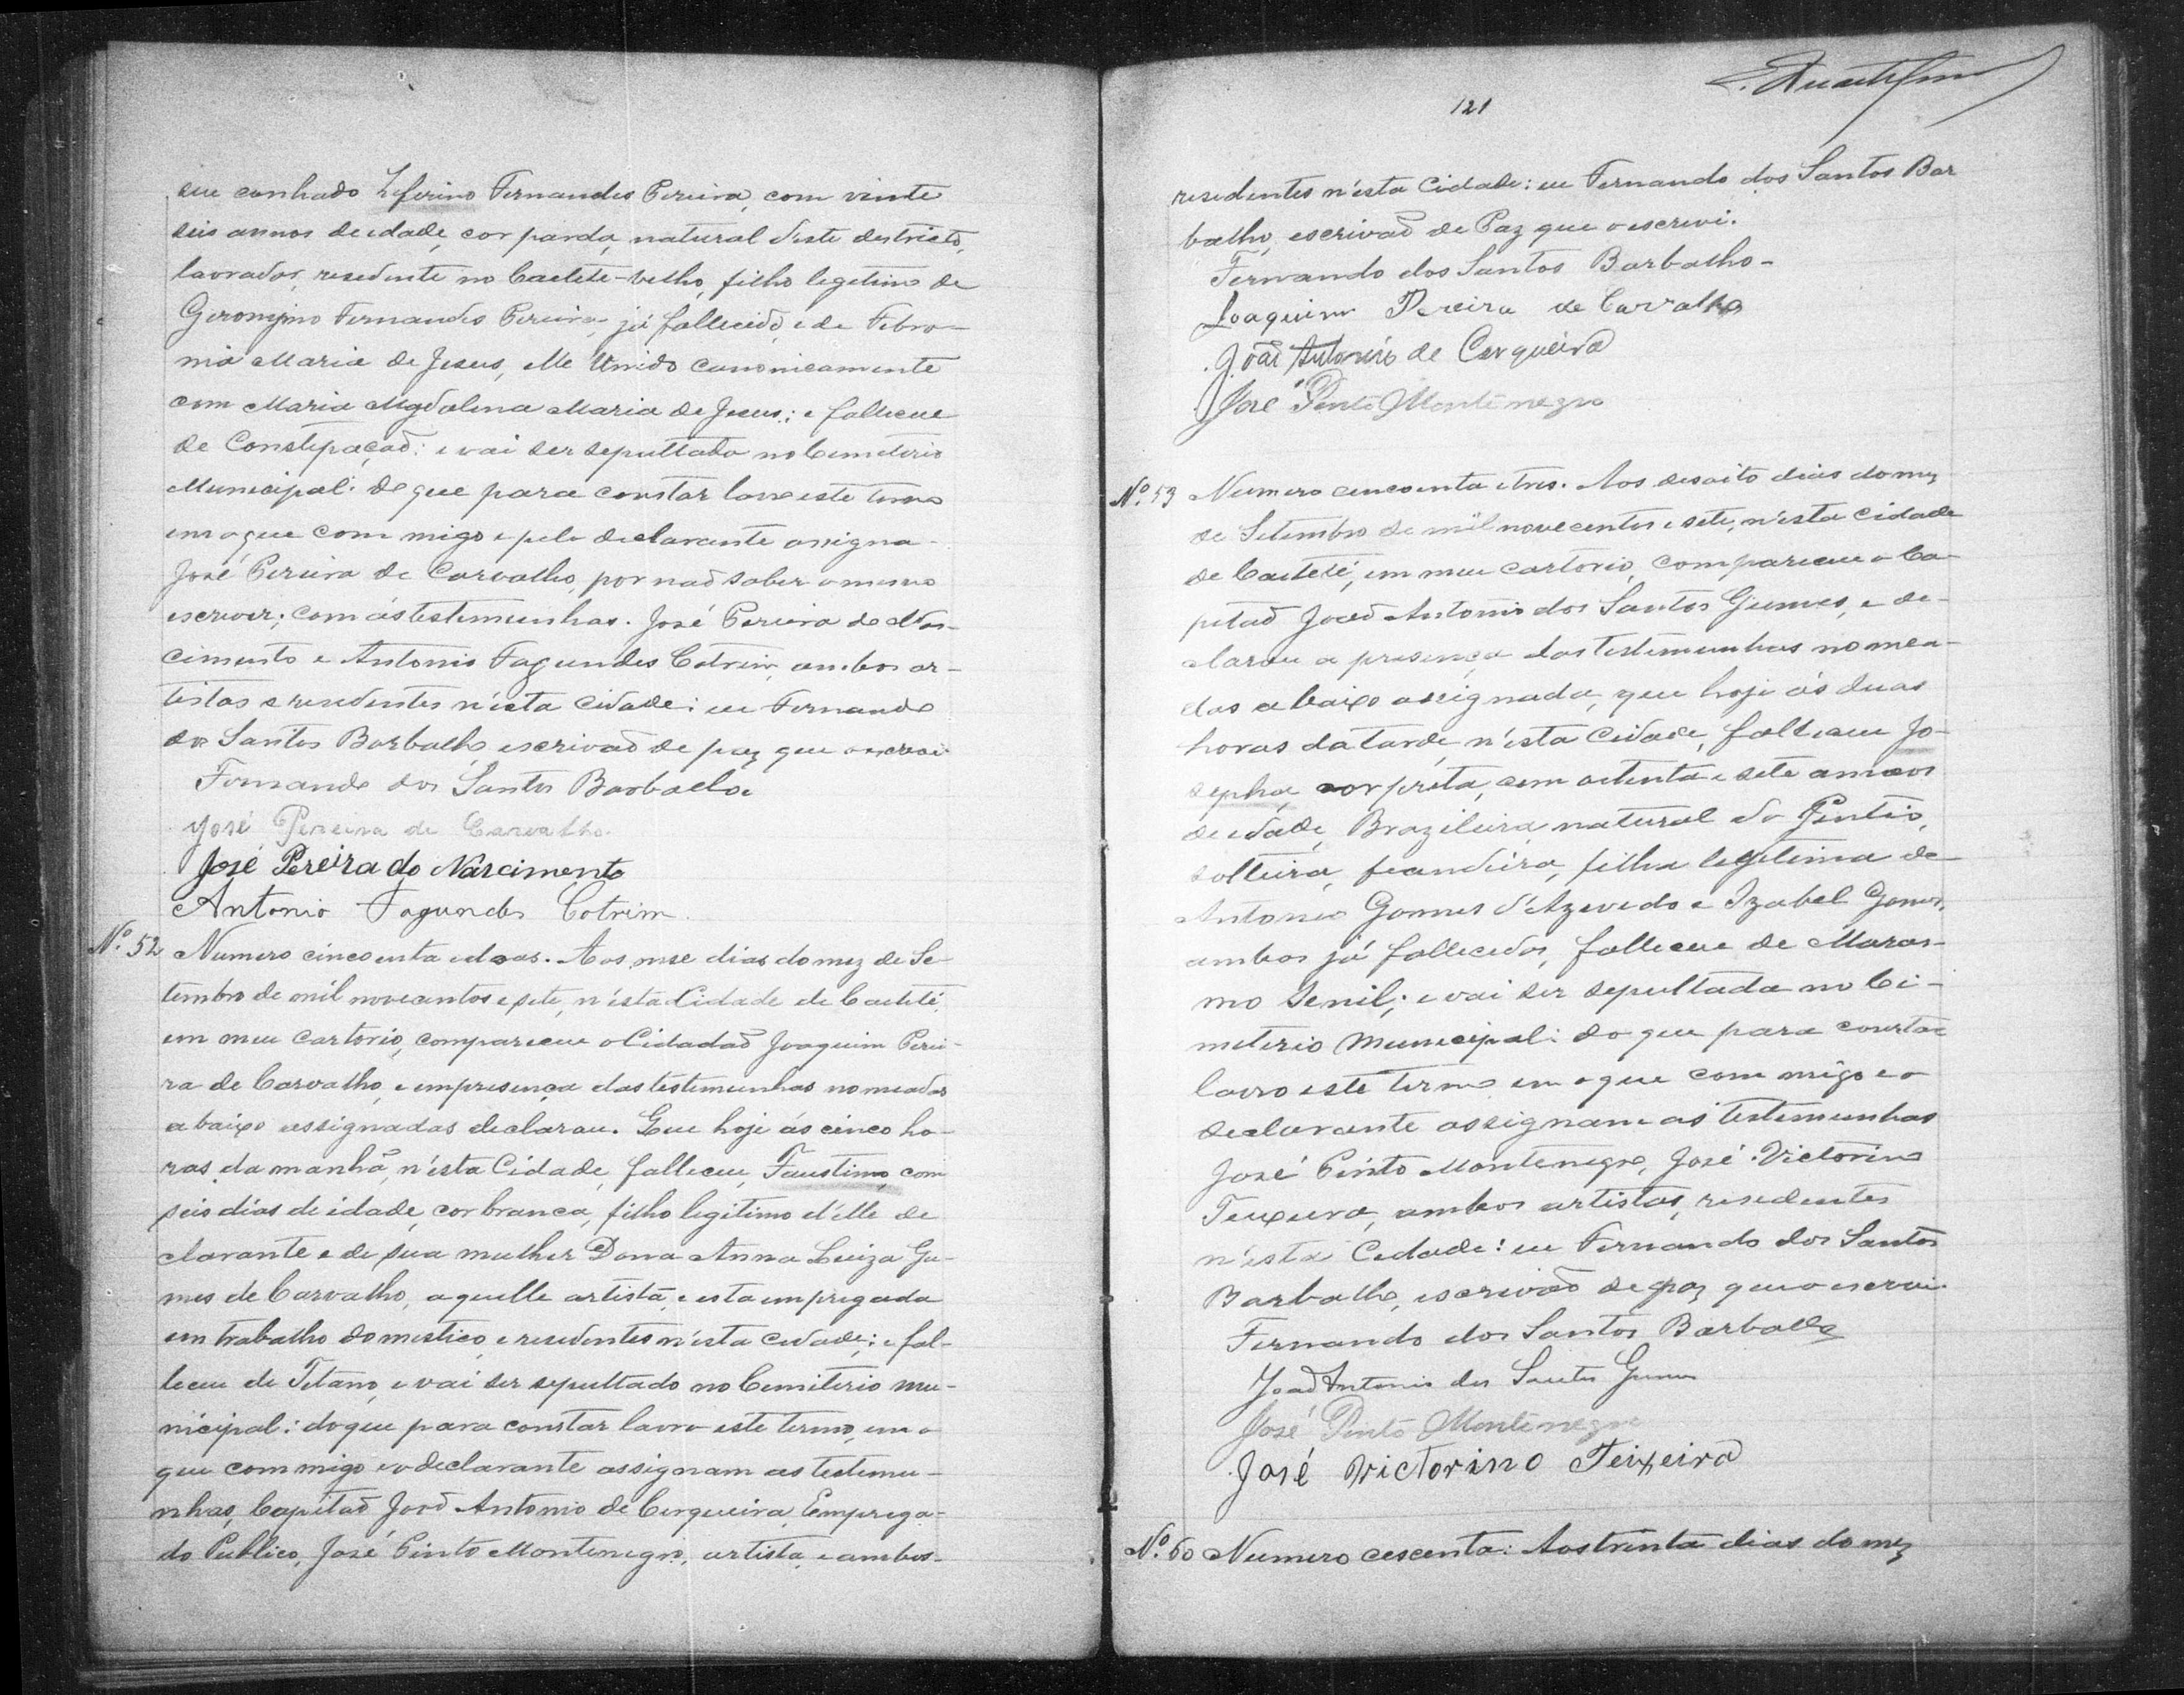 seu cunhado Zeferino Fernandes Pereira, com vinte
seis annos de edade, cor parda, natural deste destricto,
lavrador, resedente no Caeteté-velho, filho legetimo de
Geronymo Fernandes Pereira, já fallecido, e de Febro-
nia Maria de Jesus, elle Unido canonicamente
com Maria Magdalena Maria de Jesus; e falleceu
de Constipação: e vai ser sepultado no Cemeterio
Municipal: de que para constar lavrei este termo
em o que com migo e pelo declarante assigna
José Pereira de Carvalho, por não saber o mesmo
escrever; com ás testemunhas. José Pereira do Nas-
cimento e Antonio Fagundes Cotrim, ambos ar-
tistas e resedentes n'esta Cidade: eu Fernando
dos Santos Barbalho escrivão de paz que o escrevi
Fernando dos Santos Barbalho.
José Pereira de Carvalho.
José Pereira do Nascimento
Antonio Fagundes Cotrim.
Nº. 52 Numero cincoenta e doas. Aos onse dias do mez de Se-
tembro de mil novecentos e sete, n'esta Cidade de Caeteté,
em meu Cartorio, compareceu o Cidadão Joaquim Perei-
ra de Carvalho, e em presença das testemunhas nomeadas
abaixo assignadas declarou. Que hoje ás cinco ho-
ras da manhã, n'esta Cidade, falleceu, Faustino, com
seis dias de idade, cor branca, filho legitimo d'elle de
clarante e de sua mulher Dona Anna Luiza Gu-
mes de Carvalho, aquelle artista, e esta empregada
em trabalho domestico, e resedentes n'esta cidade; e fal-
leceu de Tetano, e vai ser sepultado no Cemiterio mu-
nicipal: do que para constar lavro este termo, em o
que com migo e o declarante assignam as testemu-
nhas, Capitão João Antonio de Cerqueira, Emprega-
do Publico, José Pinto Montenegro, artista, e ambos
121
resedentes n'esta Cidade: eu Fernando dos Santos Bar
balho, escrivão de Paz que o escrevi.
Fernando dos Santos Barbalho-
Joaquim Pereira de Carvalho
João Antonio de Cerqueira
José Pinto Montenegro
Nº. 53 Numero cencoenta e tres. Aos desoito dias do mez
de Setembro de mil novecentos e sete, n'esta cidade
de Caeteté, em meu cartorio, compareceu o Ca-
pitão João Antonio dos Santos Gumes, e de-
clarou a presença das testemunhas nomea-
das abaixo assignada, que hoje ás duas
horas da tarde, n'esta Cidade, falleceu Jo-
sepha, cor preta, com oetenta e sete annos
de edade, Brazileira, natural do Gentio,
solteira, fiandeira, filha legetima de
Antonio Gomes d'Azevedo e Izabel Gomes,
ambos já fallecedos, falleceu de Maras-
mo Senil; e vai ser sepultada no Ce-
meterio Municipal: do que para constar
lavro este termo em o que com migo e o
declarante assignam as testemunhas
José Pinto Montenegro, José Victorino
Teixeira, ambos artistas, resedentes
n'esta Cidade: eu Fernando dos Santos
Barbalho, escrivão de paz que o escrevi.
Fernando dos Santos Barbalho
João Antonio dos Santos Gumes
José Pinto Montenegro
José Victorino Teixeira
Nº. 60 Numero cescenta: Aos trinta dias do mez